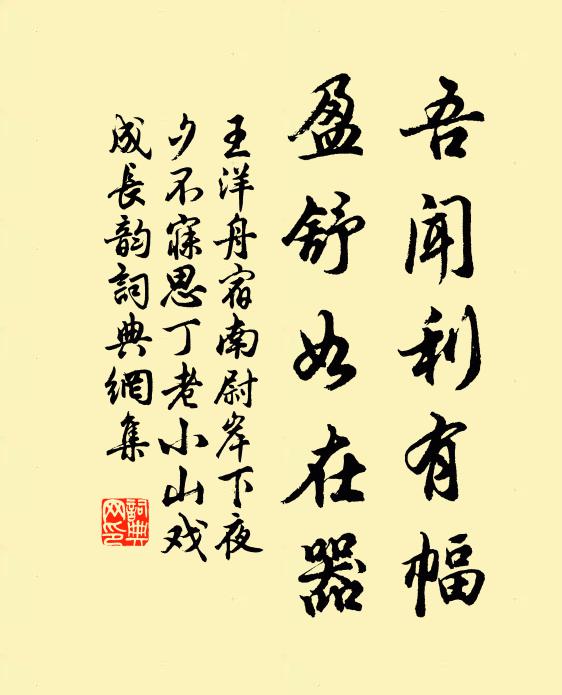 吾闻利有幅
盈舒如在器
王洋舟宿南尉岸下夜
少不寐思丁老小山戏
成长韵词典網集
詞典網印